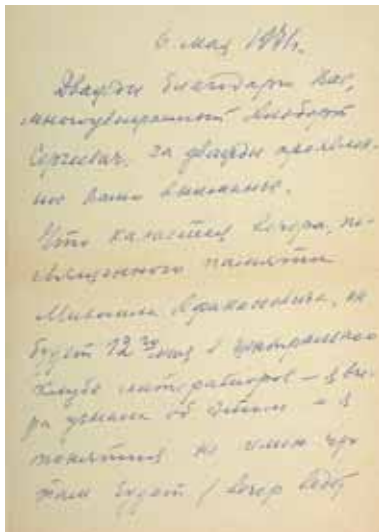 6 мая 1971г.
Дважды благодарю Вас,
многоуважаемый Альберт
Сергеевич, за дважды проявлен-
ное Вами внимание.
Что касается вечера, по-
священного памяти
Михаила Афанасьевича, он
будет 12го мая в Центральном
Клубе литераторов – я вче-
ра узнала об этом – я
понятия не имею что
там будет (вечер ведёт